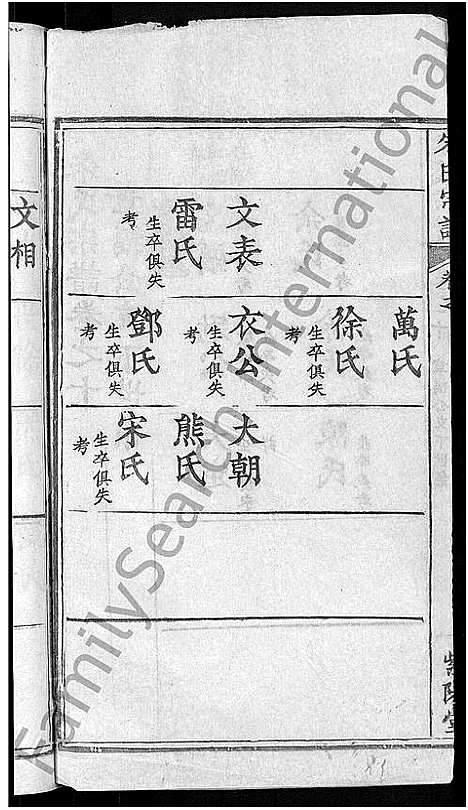 文表
雷氏
生卒俱失
考
萬氏
徐氏
生卒俱失
考
衣公
生卒俱失
考
鄧氏
生卒俱失
考
大朝
熊氏
宋氏
生卒俱失
考
文相
氏宗譜
紫陽堂
FamilySearch International